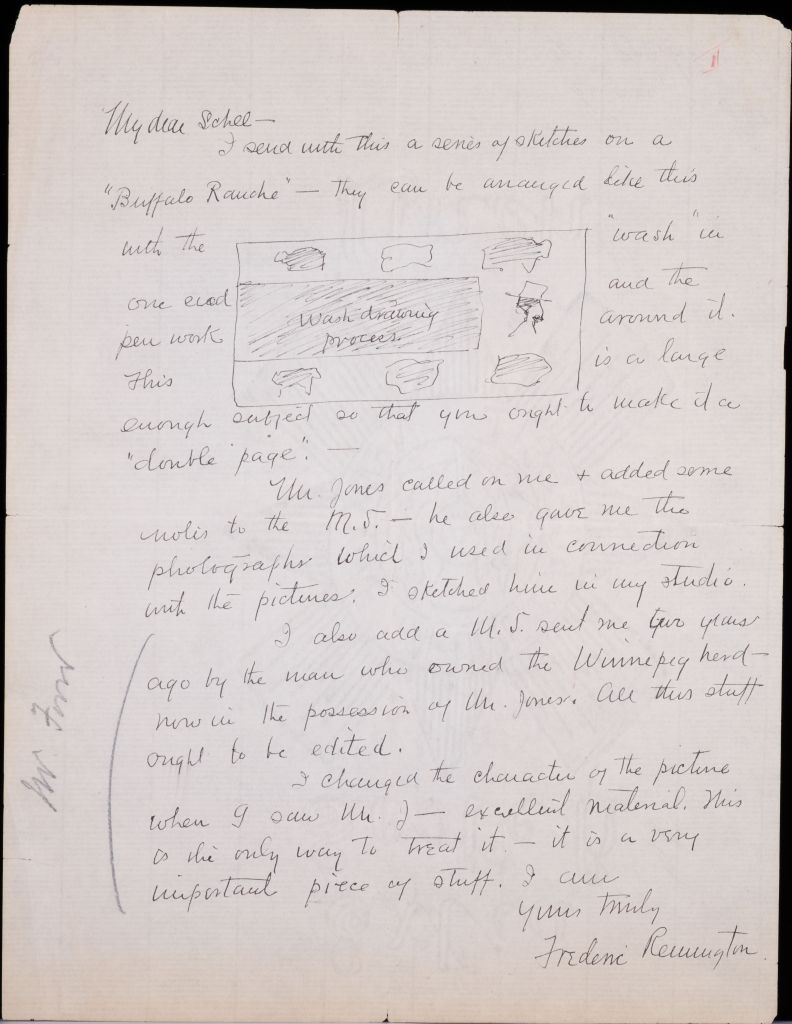 My dear Schell —
I send with this a series of sketches on a
"Buffalo Ranche" — they can be arranged like this
with the "wash" in
one end and the
pen work around it.
This is a large
Wash drawing
process.
enough subject so that you ought to make it a
"double page". —
Mr. Jones called on me + added some
notes to the M.S. — he also gave me the
photographs which I used in connection
with the pictures. I sketched him in my studio.
I also add a M.S. sent me two years
ago by the man who owned the Winnepeg herd —
now in the possession of Mr. Jones. All this stuff
ought to be edited.
I changed the character of the picture
when I saw Mr. J — excellent material. This
is the only way to treat it. — it is a very
important piece of stuff. I am
Yours truly
Frederic Remington.